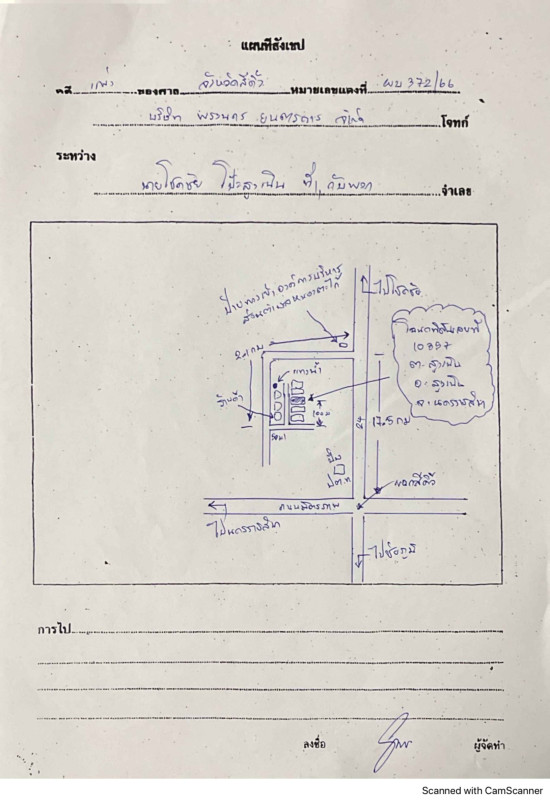 แผนที่สังเขป
คดี แพ่ง ของศาล จังหวัดสีคิ้ว หมายเลขแดงที่ ผบ 372/66
บริษัท พระนคร ยนตรการ จำกัด โจทก์
ระหว่าง
นายโชคชัย ที่ 1 กับพวก จำเลย
ไปโชคชัย
ป้ายทางเข้าองค์การบริหาร
ส่วนตำบลหนองตะไก้
โฉนดที่ดินเลขที่
10397
ต. สูงเนิน
อ. สูงเนิน
จ. นครราชสีมา
2.1 กม
แทงค์น้ำ
ร้านค้า
100 ม
ซอย 1
24
17.5 กม
ปั๊ม
ปตท
แยกสีคิ้ว
ถนนมิตรภาพ
ไปนครราชสีมา
ไปชัยภูมิ
การไป
ลงชื่อ ผู้จัดทำ
Scanned with CamScanner